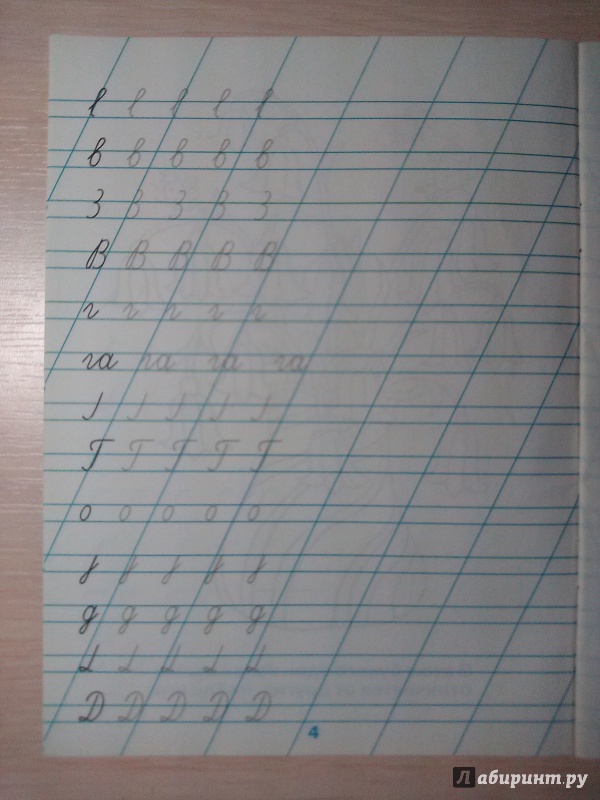 в в в в в
З З З З З
В В В В В
г г г г г
га га га га
Г Г Г Г Г
о о о о о
д д д д д
Д Д Д Д Д
4
Лабиринт.ру